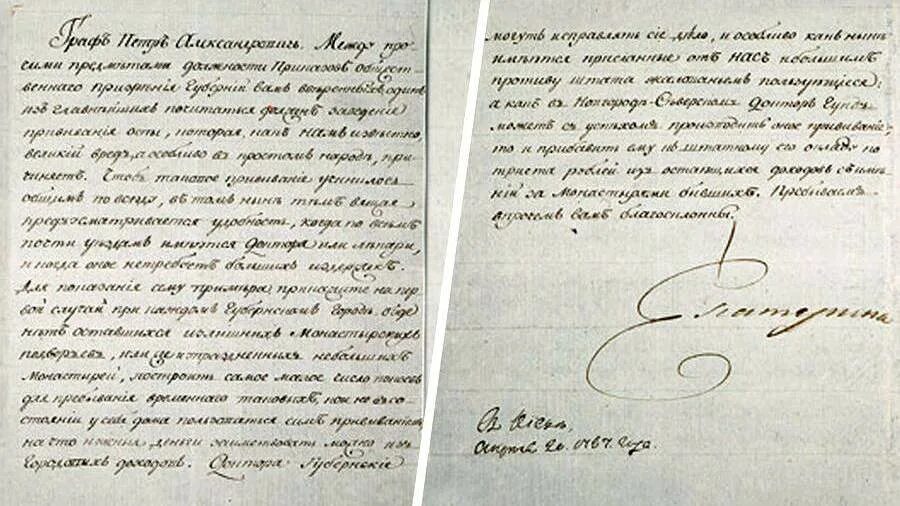 Графъ Петръ Александровичь. Между про-
чими предмѣтами должности Приказовъ общест-
веннаго призрѣнія Губерній вамъ ввѣренныхъ, одинъ
изъ главнѣйшихъ почитаться долженъ заведеніе
прививанія оспы, которая, какъ намъ извѣстно,
великій вредъ, а особливо въ простомъ народѣ, при-
чиняетъ. Чтобъ таковое прививаніе учинилось
общимъ повсюду, въ томъ нынѣ тѣмъ вящая
предъусматривается удобность, когда по всѣмъ
почти уѣздамъ имѣются Доктора или лѣкари,
и когда оное не требуетъ большихъ издержекъ.
Для показанія сему примѣра, прикажите на пер-
вой случай при каждомъ Губернскомъ Городѣ, въ
нѣтъ оставшихся излишнихъ Монастырскихъ
подворьевъ, или же изъ упраздненныхъ небольшихъ
Монастырей, построить самое малое число покоевъ
для пребыванія временнаго таковыхъ, кои не въ со-
стояніи у себя дома пользоваться симъ прививаніемъ,
на что нужныя деньги заимствовать можно изъ
Городскихъ доходовъ. Доктора Губернскіе
могутъ исправлять сіе дѣло, и особливо какъ нынѣ
имѣются присланные отъ НАСЪ небольшимъ
противу штата жалованьемъ пользующіеся:
а какъ въ Новгородѣ-Сѣверскомъ Докторъ Гунъ
можетъ съ успѣхомъ производить оное прививаніе,
то и прибавить ему къ штатному его окладу по
триста рублей изъ остающихся доходовъ съ имѣ-
ній за Монастырями бывшихъ. Пребываемъ
впрочемъ вамъ благосклонны.
Екатерина
Въ Кіевѣ,
Апрѣля 20. 1787. года.